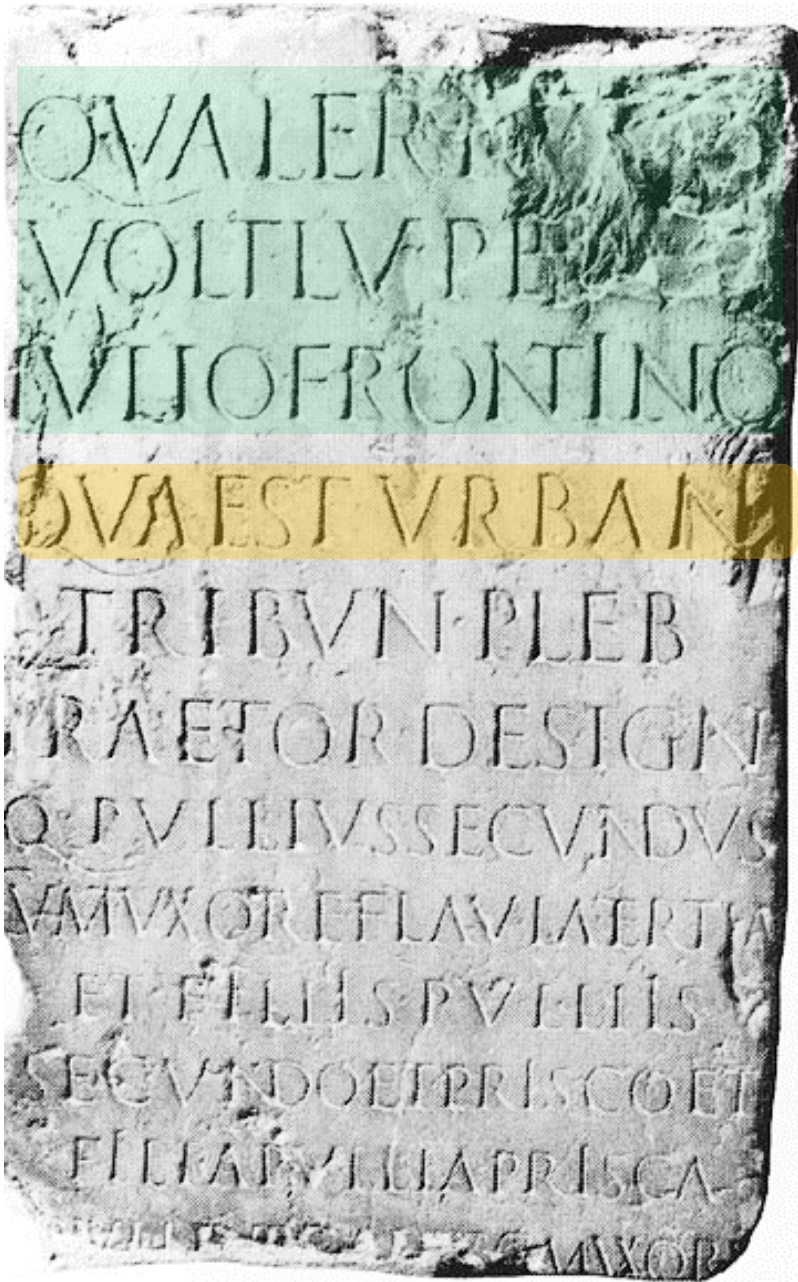 Q VALERI
VOLT LVPE
IVLIO FRONTINO
QVAEST VRBAN
TRIBVN · PLEB
PRAETOR DESIGN
Q PVLLIVS SECVNDVS
CVM VXORE FLAVIA TERTIA
ET FILIIS PVLLIIS
SECVNDO ET PRISCO ET
FILIA PVLLIA PRISCA
CVM VXORE